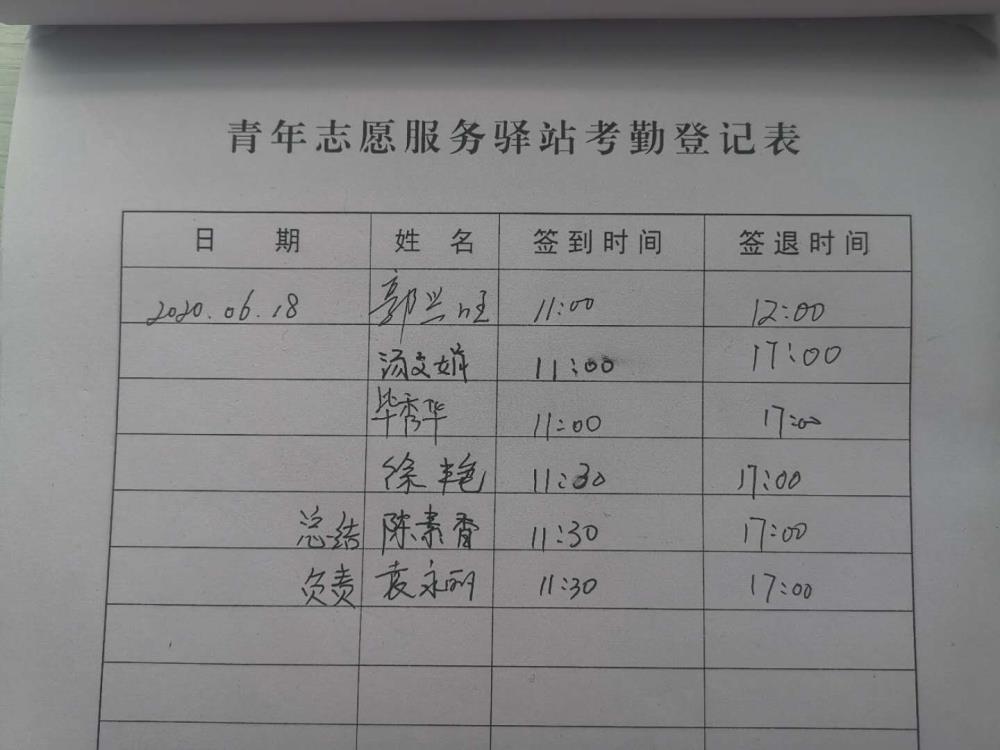 青年志愿服务驿站考勤登记表
日期 姓名 签到时间 签退时间
2020.06.18 郭兴旺 11:00 12:00
汤文娟 11:00 17:00
毕秀华 11:00 17:00
徐艳 11:30 17:00
总结 陈素香 11:30 17:00
负责 袁永丽 11:30 17:00